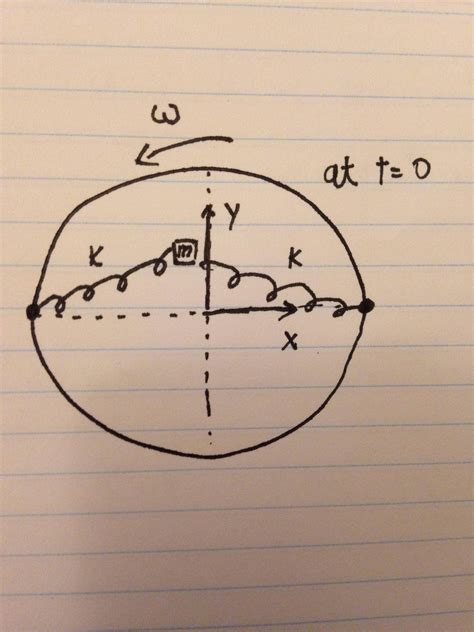 ω
at t=0
y
K
m
K
x